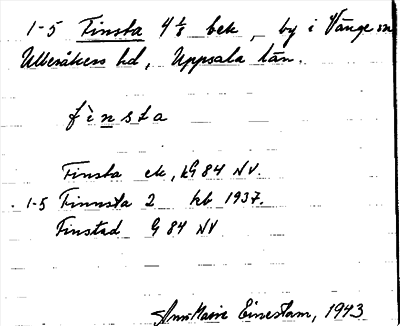 1-5 Finsta 4 1/8 bek, by i Vänge sn
Ulleråkers hd, Uppsala län.
fìnsta
Finsta ek, kG 84 NV.
1-5 Finnsta 2 kb 1937.
Finstad G 84 NV
Ann Marie Einestam, 1943